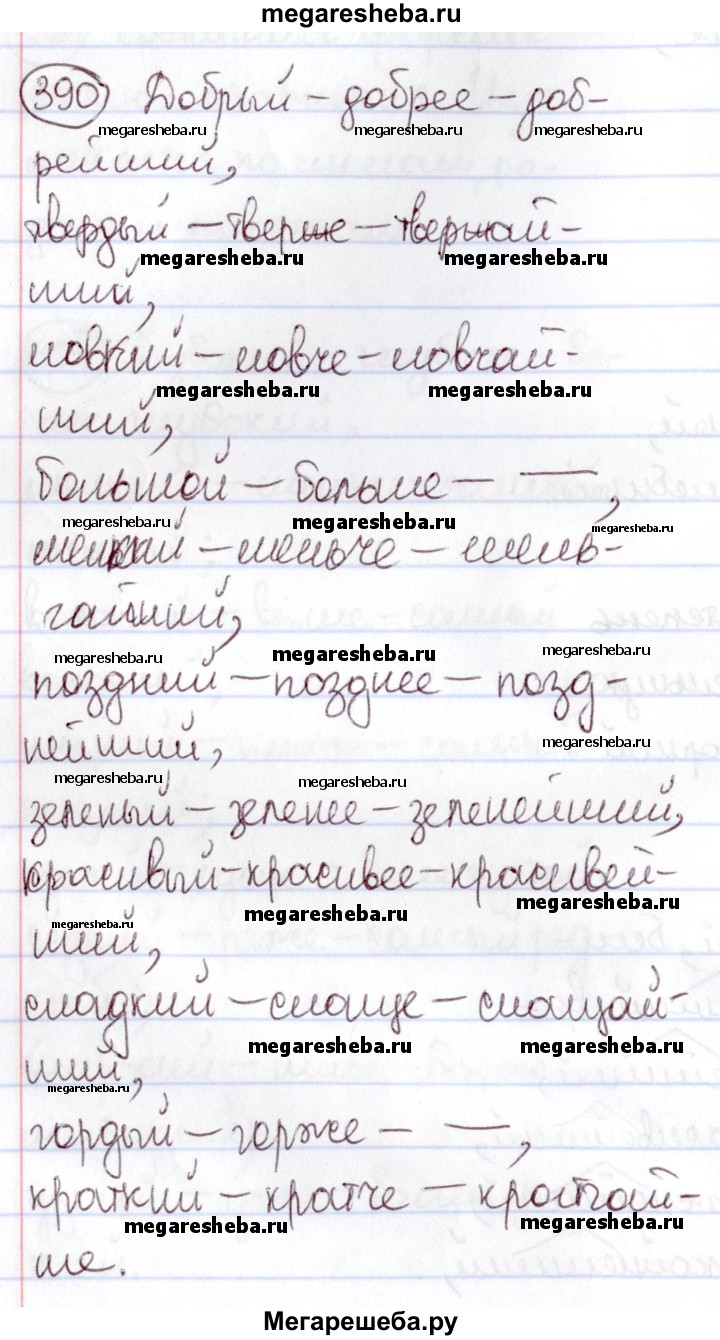 megaresheba.ru
390 Добрый – добрее – доб-
megaresheba.ru megaresheba.ru megaresheba.ru
рейший,
твердый – тверже – твержай-
megaresheba.ru megaresheba.ru
ший,
ловкий – ловче – ловчай-
megaresheba.ru megaresheba.ru
ший,
большой – больше – —,
megaresheba.ru megaresheba.ru megaresheba.ru
– мельче – мель-
чайший,
megaresheba.ru megaresheba.ru megaresheba.ru
поздний – позднее – позд-
нейший,
megaresheba.ru
megaresheba.ru megaresheba.ru
зеленый – зеленее – зеленейший,
красивый – красивее – красивей-
megaresheba.ru megaresheba.ru megaresheba.ru
ший,
сладкий – слаще – слащай-
megaresheba.ru megaresheba.ru
ший,
megaresheba.ru
гордый – горже – —,
краткий – кратче – кратчай-
megaresheba.ru megaresheba.ru
ше.
Мегарешеба.ру